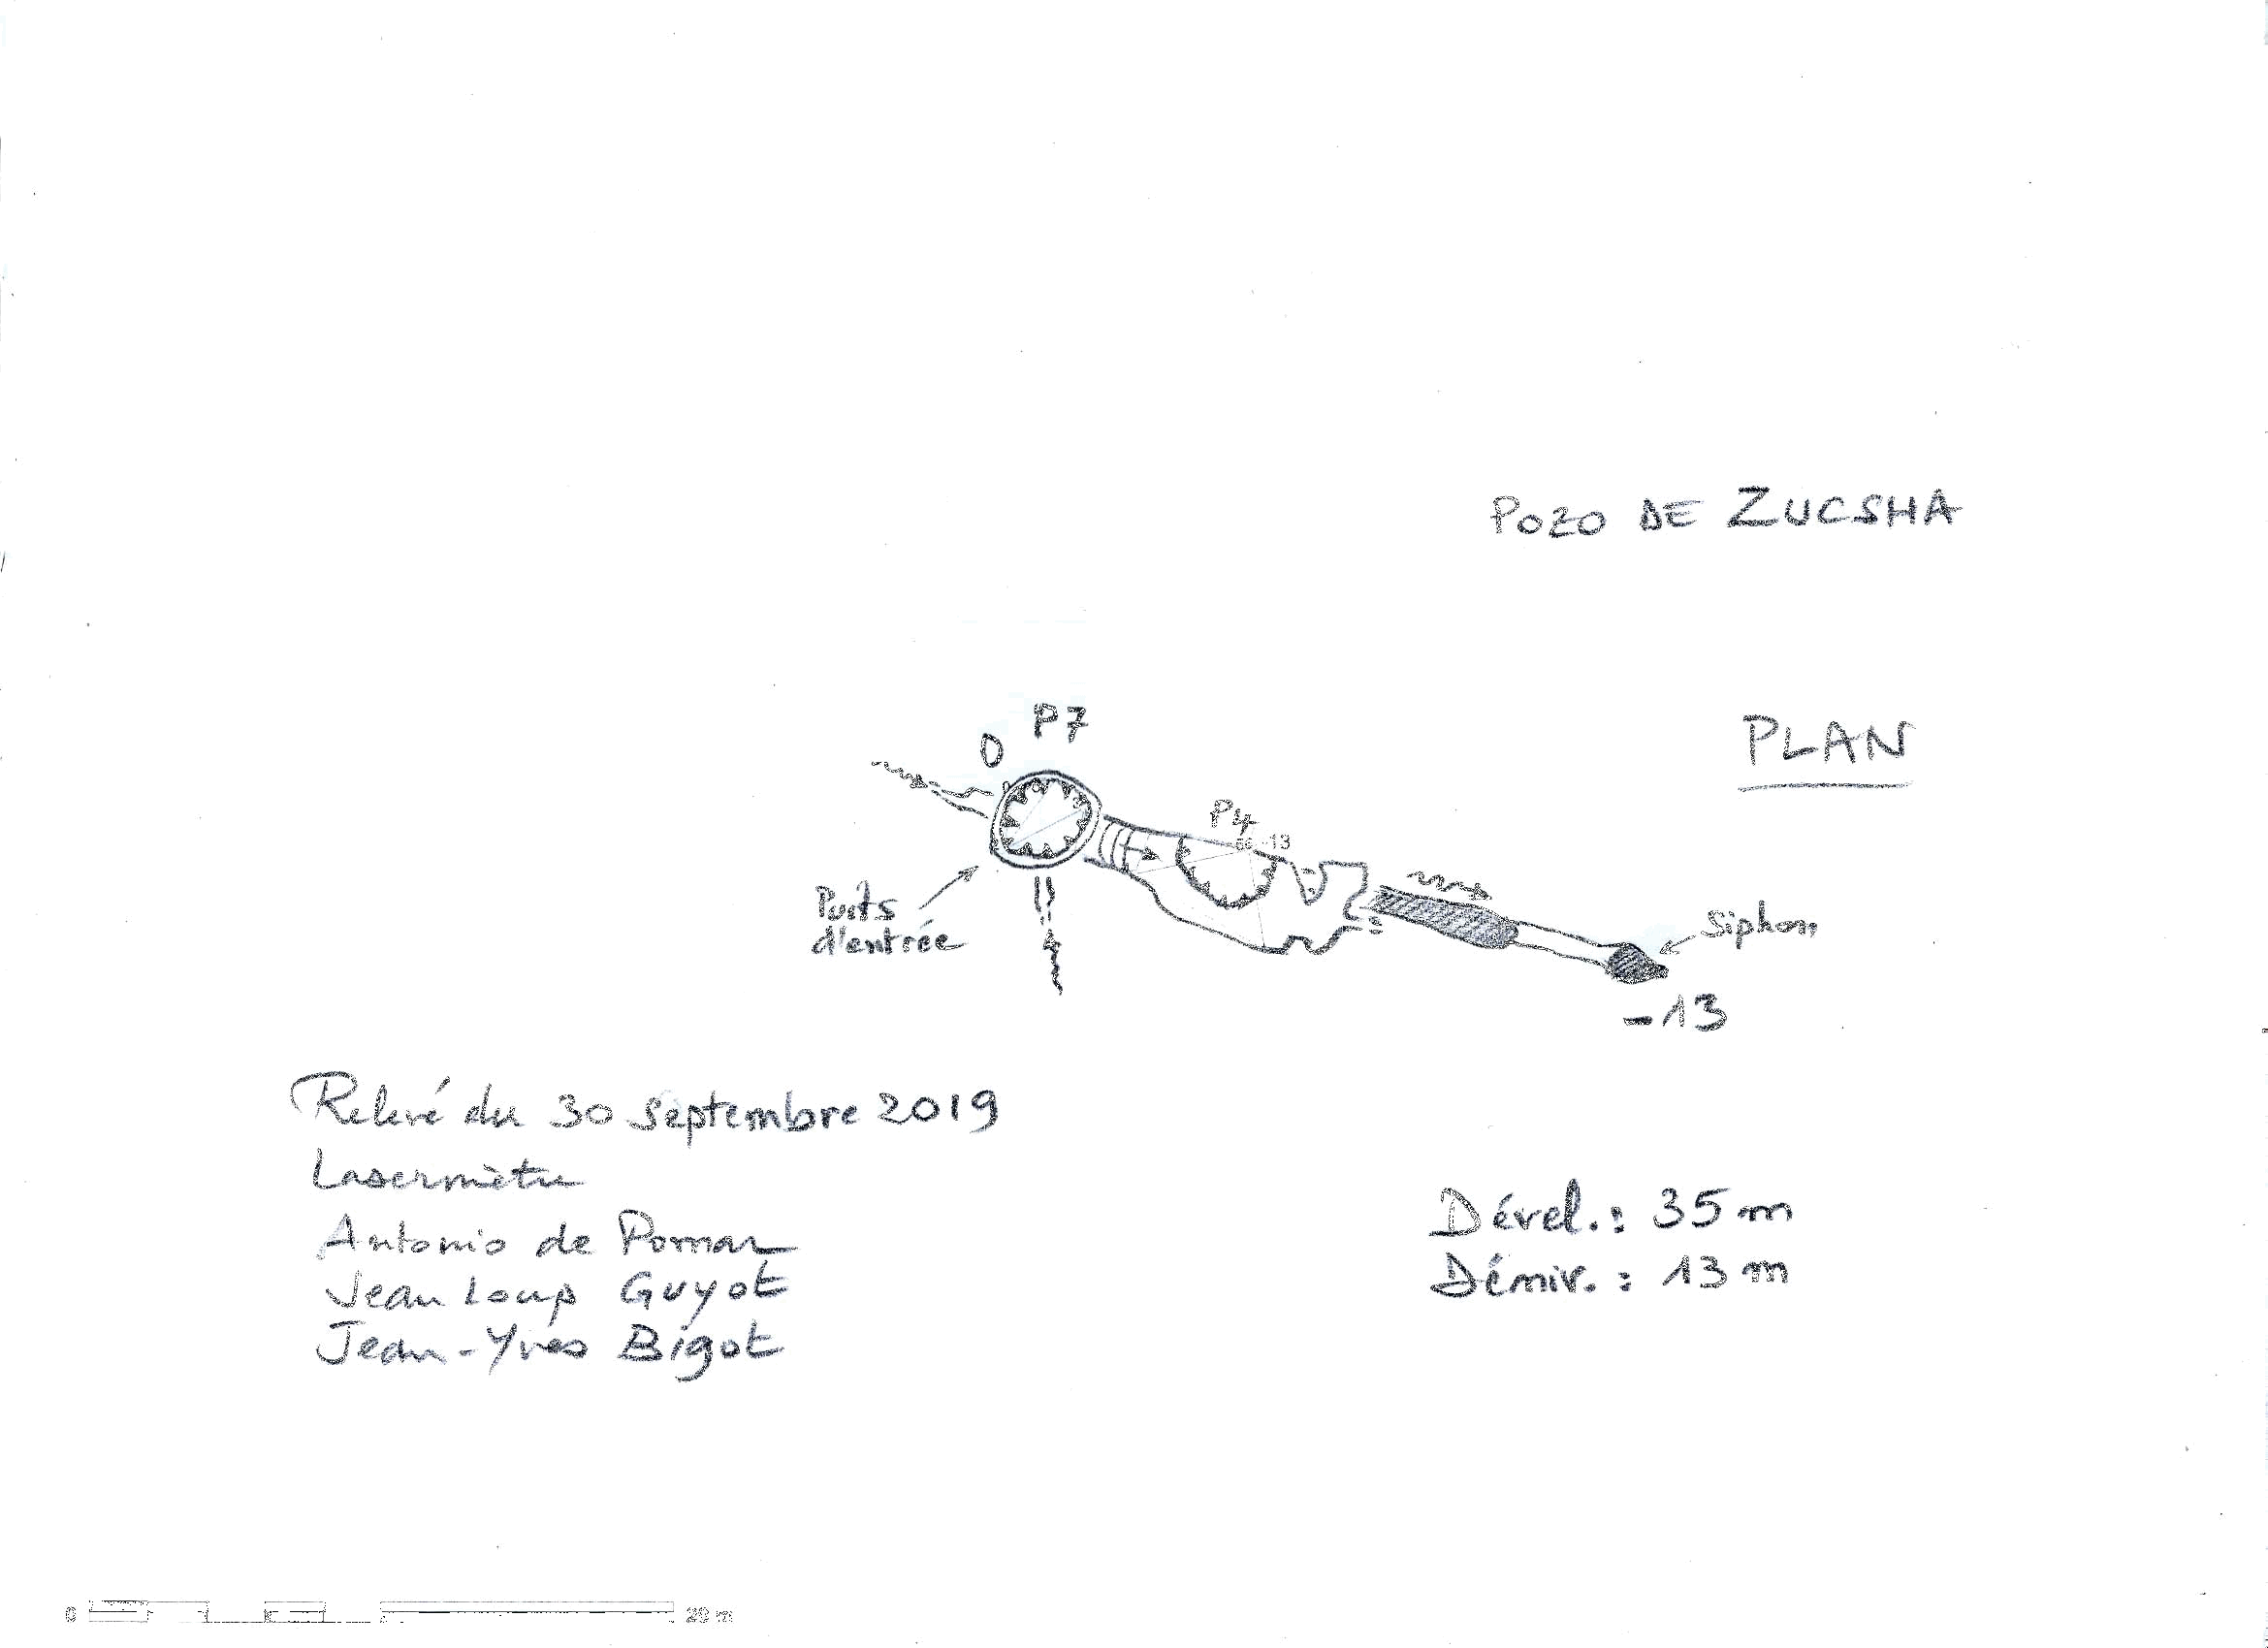 POZO DE ZUCSHA
PLAN
P7
0
P4
-13
Puits
d'entrée
Siphon
-13
Relevé du 30 septembre 2019
Lasermètre
Antonio de Pomar
Jean Loup Guyot
Jean-Yves Bigot
Dével.: 35 m
Déniv.: 13 m
0 20 m